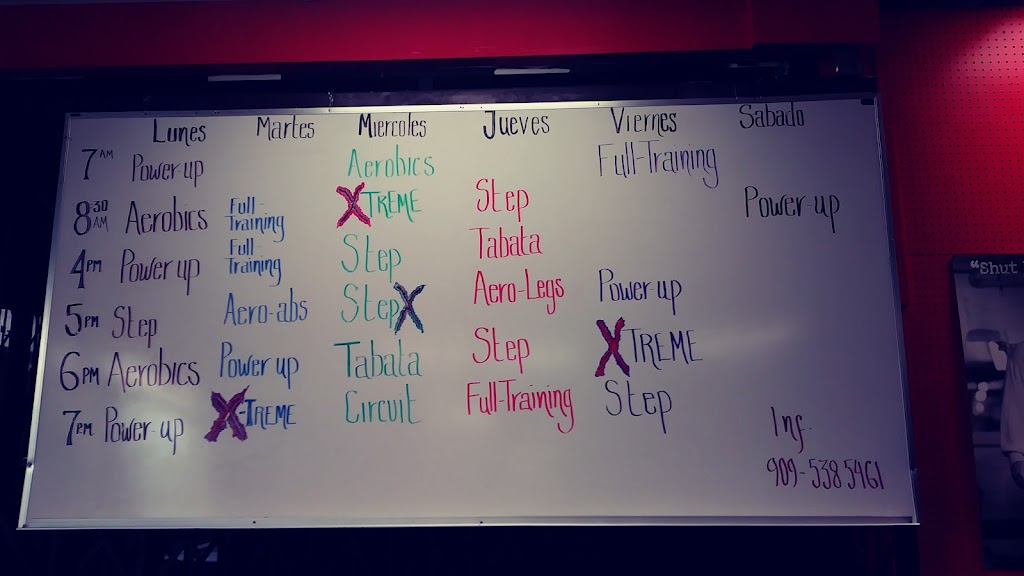 Lunes Martes Miercoles Jueves Viernes Sabado
7AM Power-up Aerobics Full-Training
8:30AM Aerobics Full-Training XTREME Step Power-up
4PM Power up Full-Training Step Tabata
5PM Step Aero-abs StepX Aero-Legs Power-up
6PM Aerobics Power up Tabata Step XTREME
7PM Power-up X-TREME Circuit Full-Training Step
Inf.
909-538 5461
"Shut